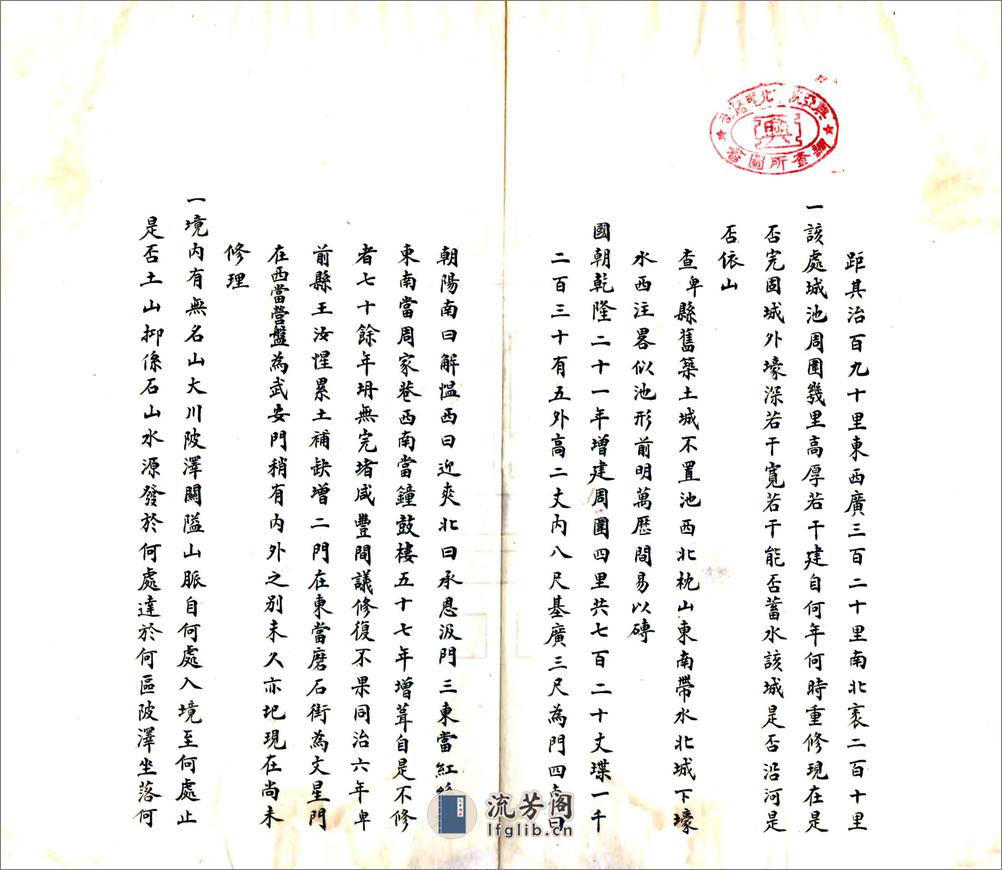 距其治百九十里東西廣三百二十里南北袤二百十里
一該處城池周圍幾里高厚若干建自何年何時重修現在是
否完固城外壕深若干寬若干能否蓄水該城是否沿河是
否依山
查卑縣舊築土城不置池西北枕山東南帶水北城下壕
水西注畧似池形前明萬厯間易以磚
國朝乾隆二十一年增建周圍四里共七百二十丈堞一千
二百三十有五外高二丈內八尺基廣三尺為門四東曰
朝陽南曰解慍西曰迎爽北曰承恩汲門三東當紅
東南當周家巷西南當鐘鼓樓五十七年增葺自是不修
者七十餘年坍無完堵咸豐間議修復不果同治六年卑
前縣王汝惺累土補缺增二門在東當磨石街為文星門
在西當營盤為武安門稍有內外之別未久亦圮現在尚未
修理
一境內有無名山大川陂澤關隘山脈自何處入境至何處止
是否土山抑係石山水源發於何處達於何區陂澤坐落何
調查所圖書
興
流芳阁
lfglib.cn